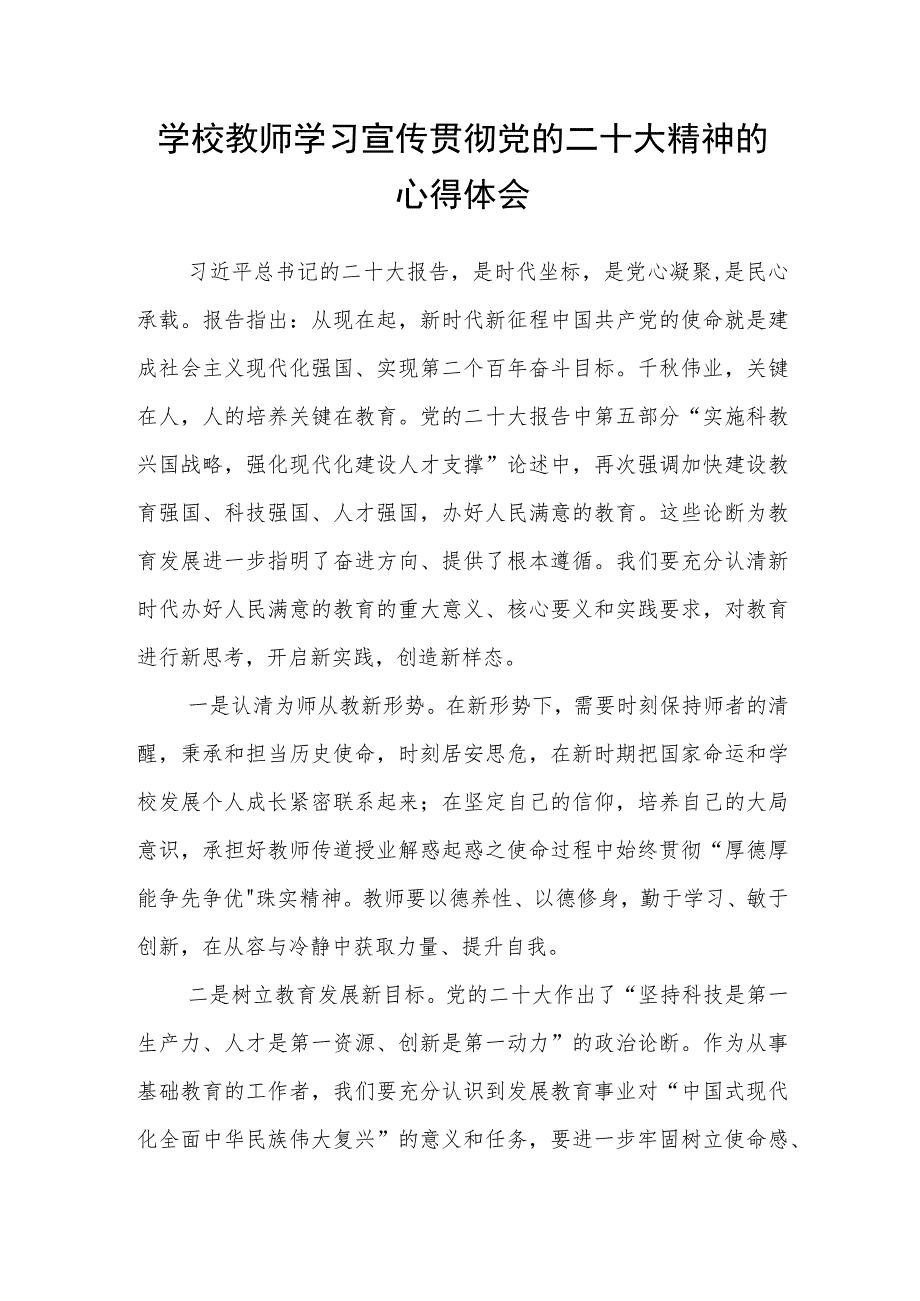 学校教师学习宣传贯彻党的二十大精神的
心得体会
习近平总书记的二十大报告，是时代坐标，是党心凝聚,是民心
承载。报告指出：从现在起，新时代新征程中国共产党的使命就是建
成社会主义现代化强国、实现第二个百年奋斗目标。千秋伟业，关键
在人，人的培养关键在教育。党的二十大报告中第五部分“实施科教
兴国战略，强化现代化建设人才支撑”论述中，再次强调加快建设教
育强国、科技强国、人才强国，办好人民满意的教育。这些论断为教
育发展进一步指明了奋进方向、提供了根本遵循。我们要充分认清新
时代办好人民满意的教育的重大意义、核心要义和实践要求，对教育
进行新思考，开启新实践，创造新样态。
一是认清为师从教新形势。在新形势下，需要时刻保持师者的清
醒，秉承和担当历史使命，时刻居安思危，在新时期把国家命运和学
校发展个人成长紧密联系起来；在坚定自己的信仰，培养自己的大局
意识，承担好教师传道授业解惑起惑之使命过程中始终贯彻“厚德厚
能争先争优"珠实精神。教师要以德养性、以德修身，勤于学习、敏于
创新，在从容与冷静中获取力量、提升自我。
二是树立教育发展新目标。党的二十大作出了“坚持科技是第一
生产力、人才是第一资源、创新是第一动力”的政治论断。作为从事
基础教育的工作者，我们要充分认识到发展教育事业对“中国式现代
化全面中华民族伟大复兴”的意义和任务，要进一步牢固树立使命感、